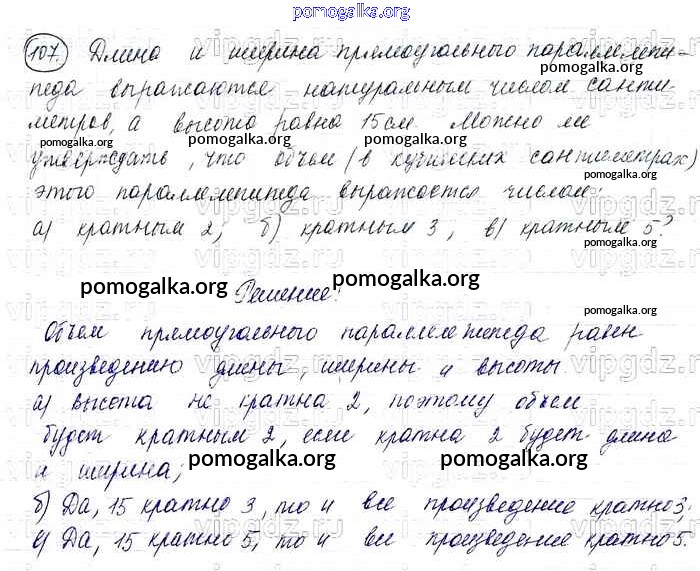 pomogalka.org
107. Длина и ширина прямоугольного параллелепи-
pomogalka.org
педа выражаются натуральным числом санти-
pomogalka.org
метров, а высота равна 15 см. Можно ли
pomogalka.org pomogalka.org
утверждать, что объем (в кубических сантиметрах)
pomogalka.org
этого параллелепипеда выражается числом:
а) кратным 2; б) кратным 3, в) кратным 5?
pomogalka.org
pomogalka.org pomogalka.org
Решение:
pomogalka.org
Объем прямоугольного параллелепипеда равен
произведению длины, ширины и высоты.
а) высота не кратна 2, поэтому объем
будет кратным 2, если кратна 2 будет длина
и ширина;
pomogalka.org pomogalka.org
б) Да, 15 кратно 3, то и все произведение кратно 3;
в) Да, 15 кратно 5, то и все произведение кратно 5.
vipgdz.ru